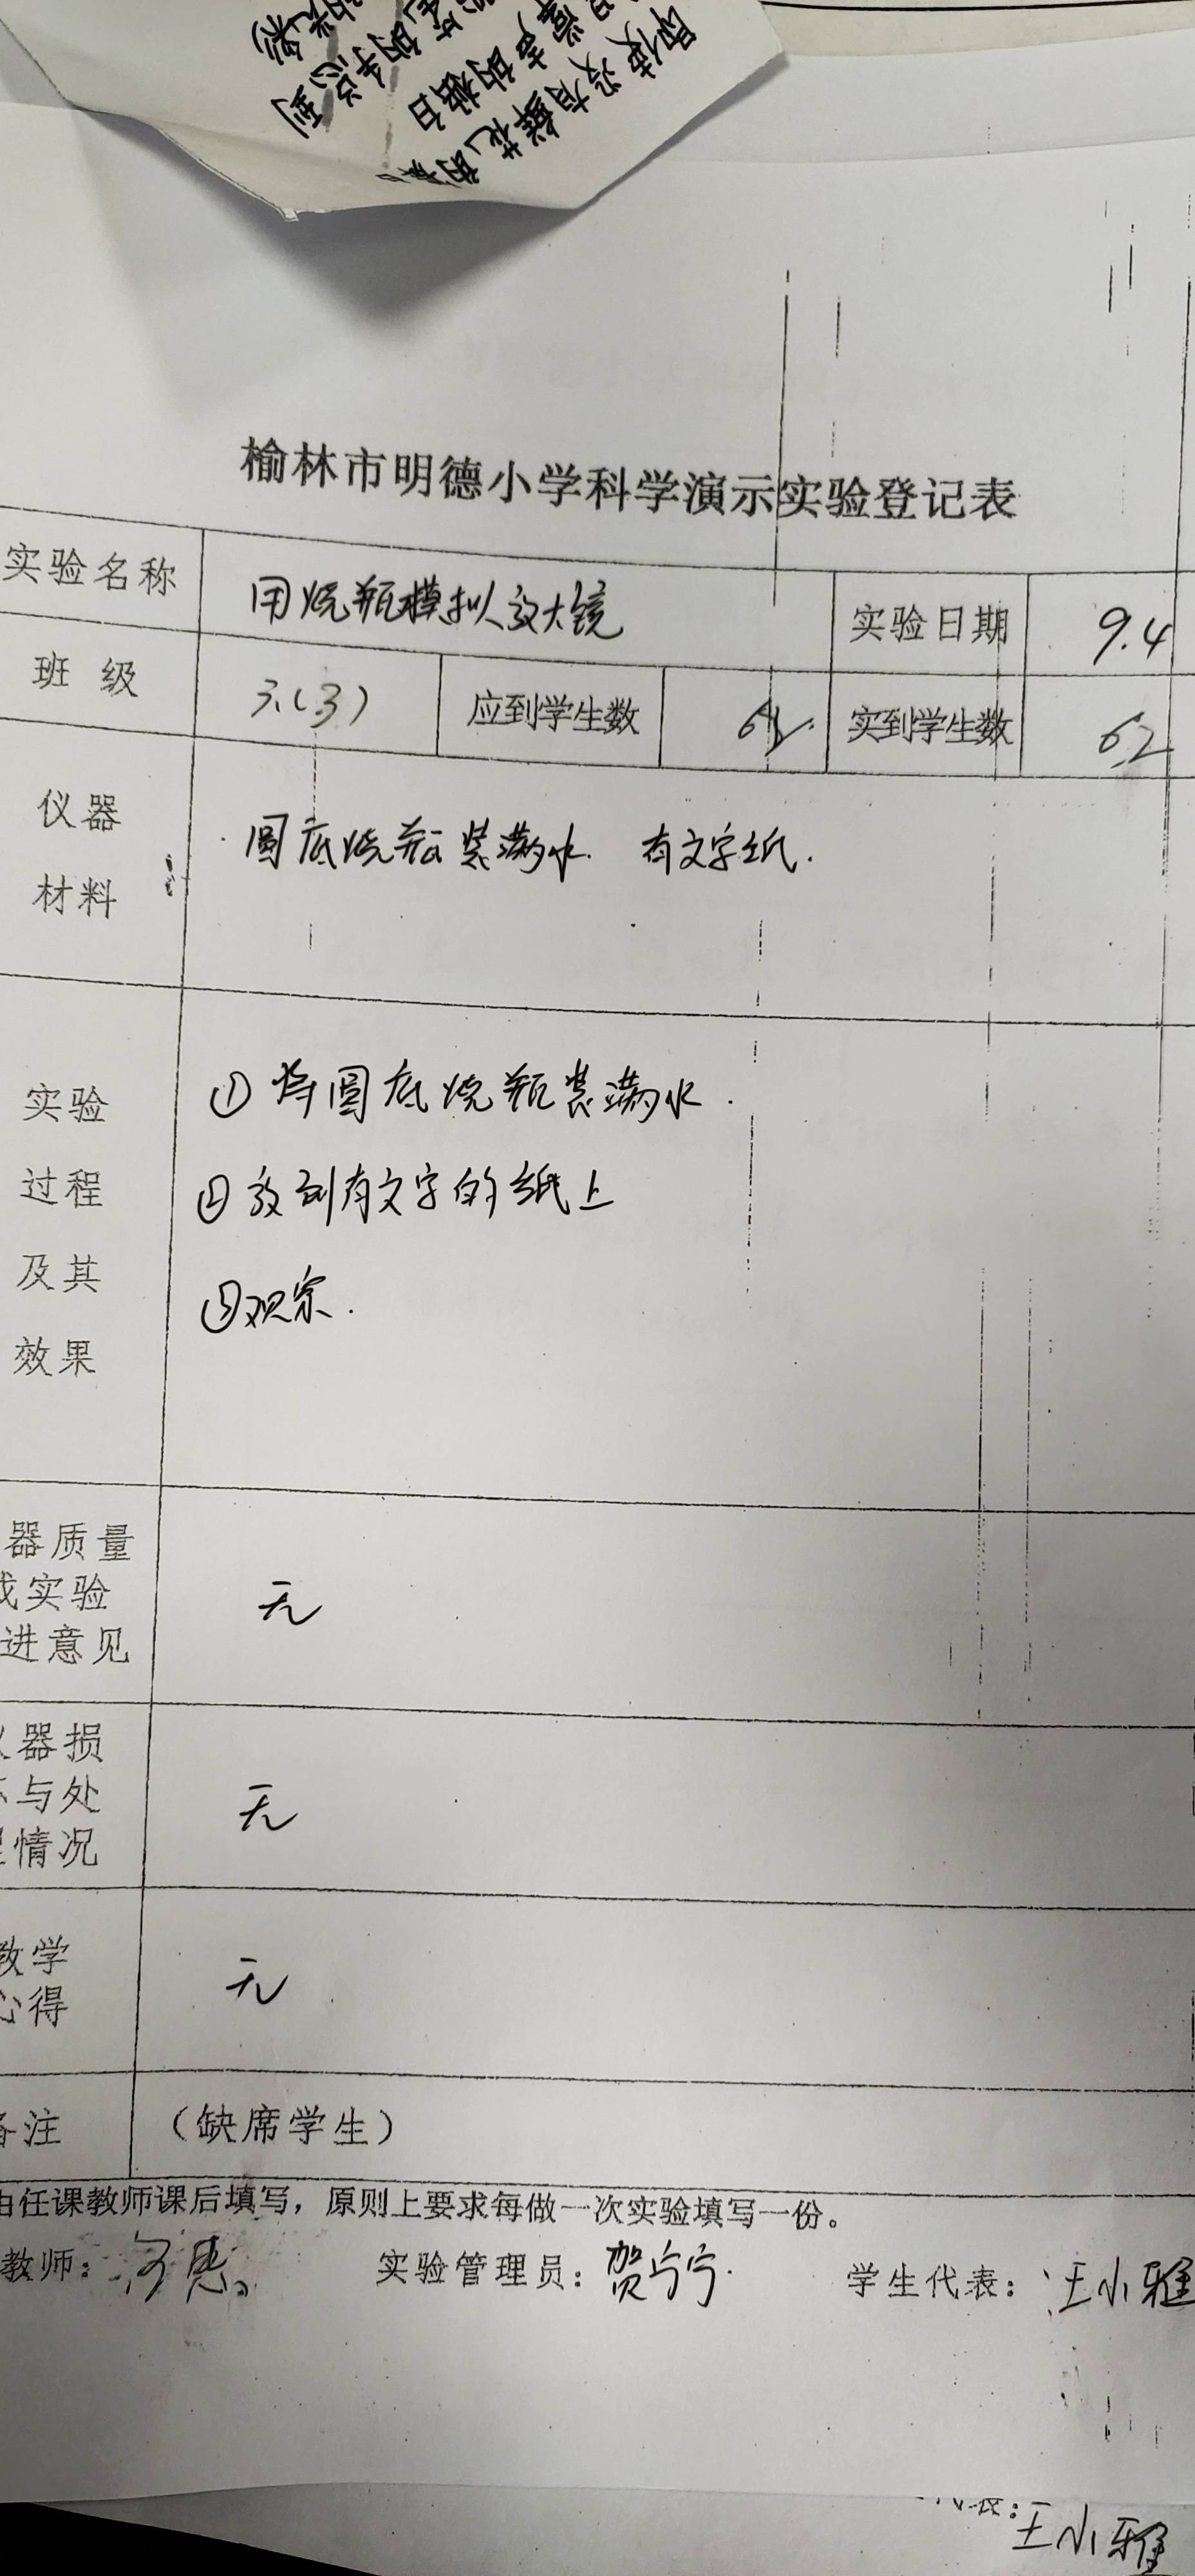 即使没有鲜花的
榆林市明德小学科学演示实验登记表
实验名称 用烧瓶模拟放大镜 实验日期 9.4
班 级 应到学生数 62 实到学生数 62
仪器
材料
圆底烧瓶装满水. 有文字纸.
实验
过程
及其
效果
①将圆底烧瓶装满水.
②放到有文字的纸上
③观察.
器质量
或实验
进意见
无
器损
与处
情况
无
教学
心得
无
备注 （缺席学生）
由任课教师课后填写，原则上要求每做一次实验填写一份。
教师： 实验管理员：贺宁宁 学生代表：王小雅
代表：王小雅